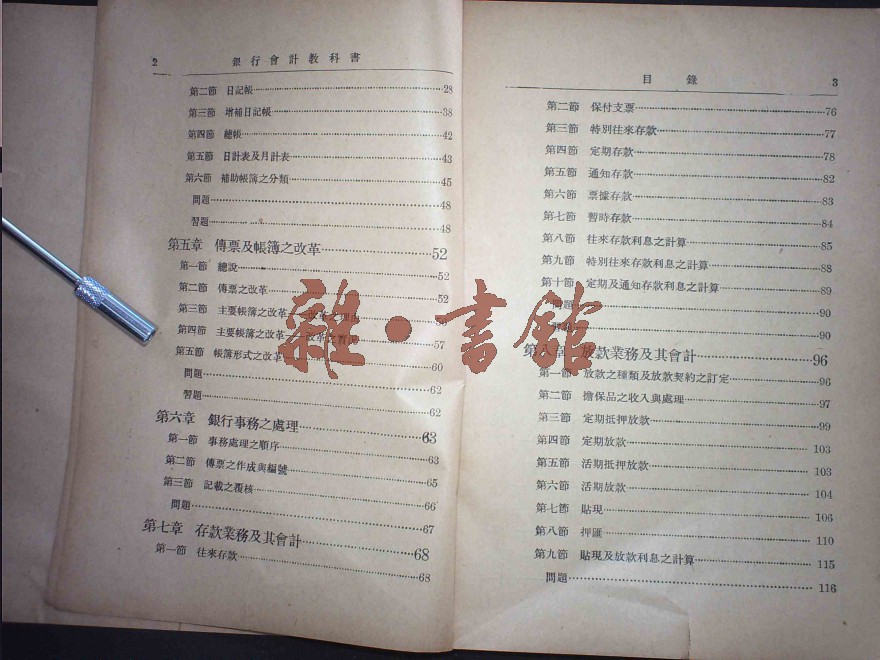 2 銀行會計教科書
第二節 日記帳 28
第三節 增補日記帳 38
第四節 總帳 42
第五節 日計表及月計表 43
第六節 補助帳簿之分類 45
問題 48
習題 48
第五章 傳票及帳簿之改革 52
第一節 總說 52
第二節 傳票之改革 52
第三節 主要帳簿之改革
第四節 主要帳簿之改革 57
第五節 帳簿形式之改革 60
問題 62
習題 62
第六章 銀行事務之處理 63
第一節 事務處理之順序 63
第二節 傳票之作成與編號 65
第三節 記載之覆核 66
問題 67
第七章 存款業務及其會計 68
第一節 往來存款 68
目錄 3
第二節 保付支票 76
第三節 特別往來存款 77
第四節 定期存款 78
第五節 通知存款 82
第六節 票據存款 83
第七節 暫時存款 84
第八節 往來存款利息之計算 85
第九節 特別往來存款利息之計算 88
第十節 定期及通知存款利息之計算 89
問題 90
90
第八章 放款業務及其會計 96
第一節 放款之種類及放款契約之訂定 96
第二節 擔保品之收入與處理 97
第三節 定期抵押放款 99
第四節 定期放款 103
第五節 活期抵押放款 103
第六節 活期放款 104
第七節 貼現 106
第八節 押匯 110
第九節 貼現及放款利息之計算 115
問題 116
雜·書館